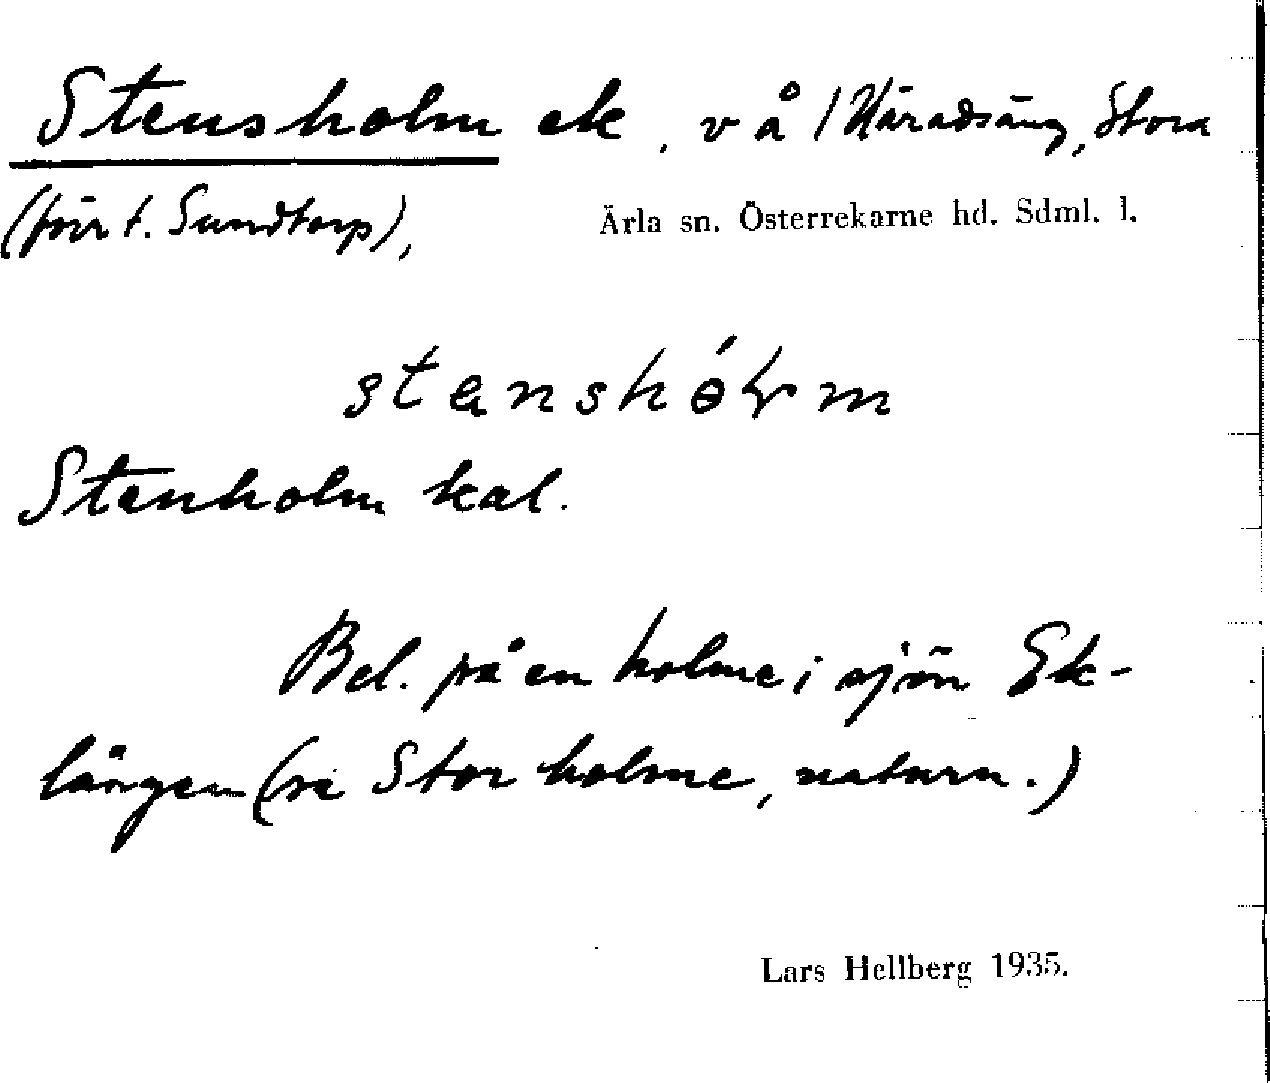 Stensholm ek, v å / Häradsäng, Stora
(förr t. Sundtorp),
Ärla sn. Österrekarne hd. Sdml. l.
stanshól̥m
Stenholm kal.
Bel. på en holme i sjön Ek-
lången (se Stor holme, naturn.)
Lars Hellberg 1935.